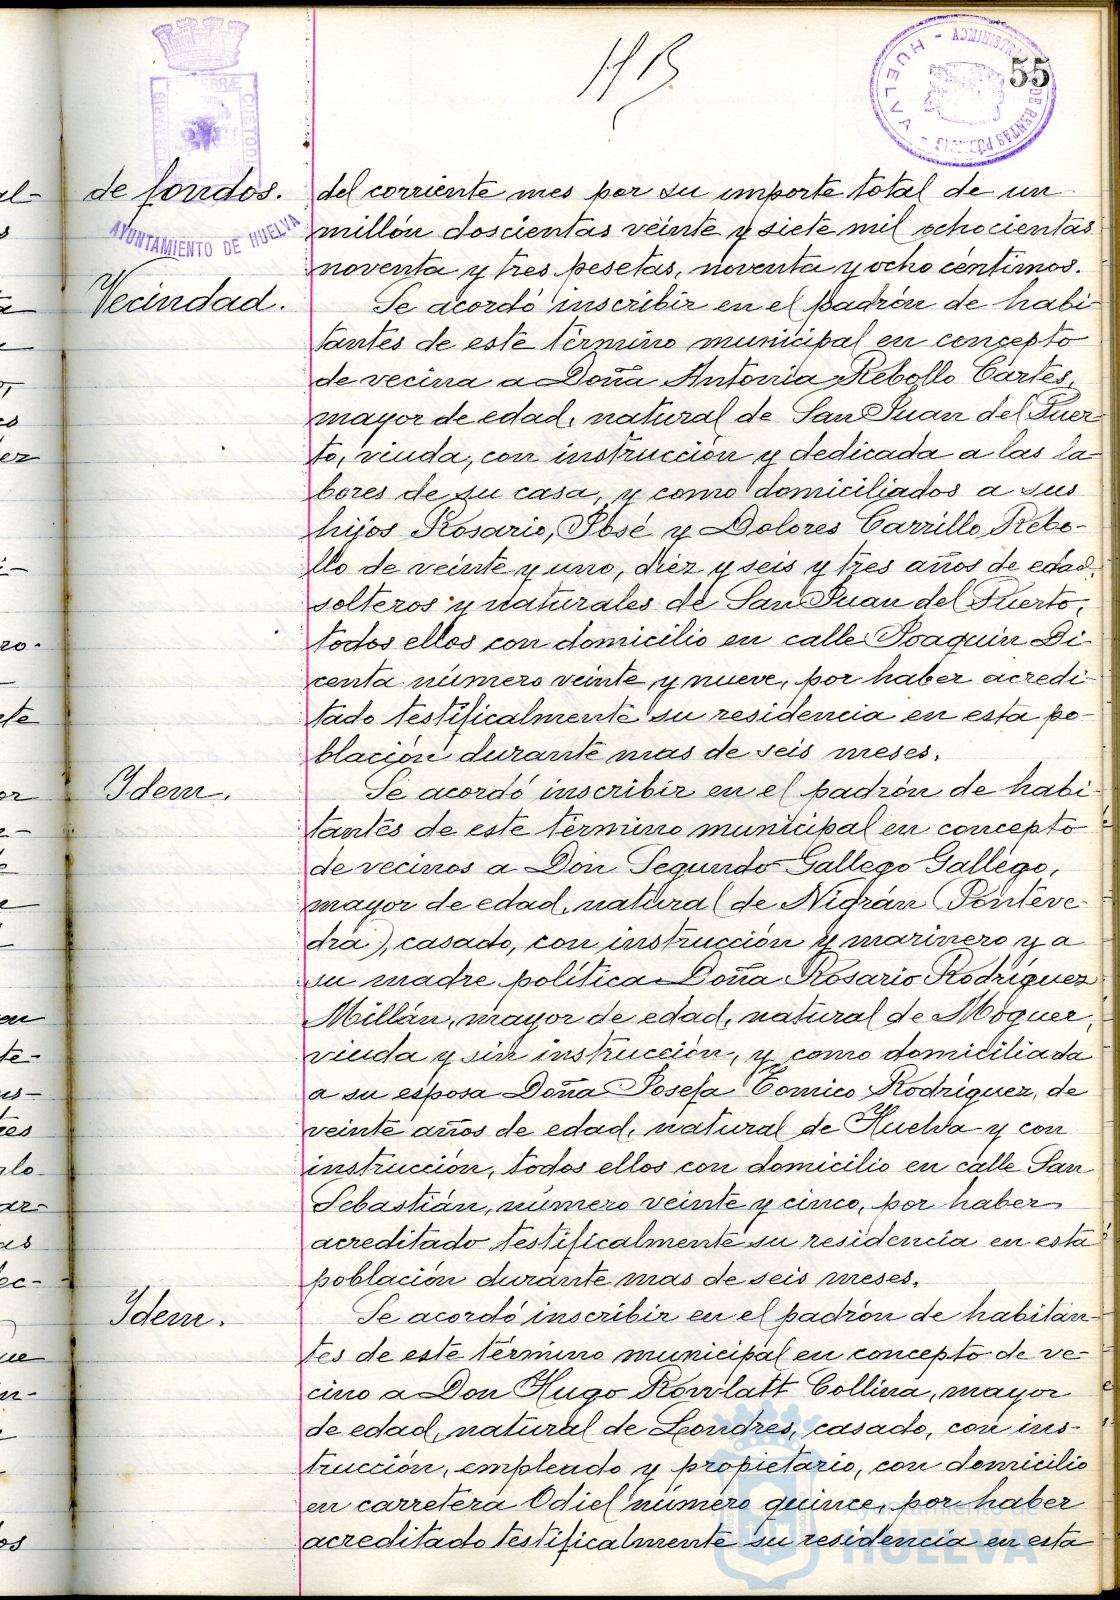 55
HUELVA - ADMINISTRACIÓN DE RENTAS PÚBLICAS
AYUNTAMIENTO DE HUELVA
de fondos.
del corriente mes por su importe total de un
millón doscientas veinte y siete mil ochocientas
noventa y tres pesetas, noventa y ocho céntimos.
Vecindad.
Se acordó inscribir en el padrón de habi-
tantes de este término municipal en concepto
de vecina a Doña Antonia Rebollo Cartes,
mayor de edad, natural de San Juan del Puer-
to, viuda, con instrucción y dedicada a las la-
bores de su casa, y como domiciliados a sus
hijos Rosario, José y Dolores Carrillo Rebo-
llo de veinte y uno, diez y seis y tres años de edad,
solteros y naturales de San Juan del Puerto,
todos ellos con domicilio en calle Joaquin Di-
centa número veinte y nueve, por haber acredi-
tado testificalmente su residencia en esta po-
blación durante mas de seis meses.
Idem.
Se acordó inscribir en el padrón de habi-
tantes de este término municipal en concepto
de vecinos a Don Segundo Gallego Gallego,
mayor de edad, natural de Nigrán (Ponteve-
dra), casado, con instrucción y marinero y a
su madre política Doña Rosario Rodríguez
Millán, mayor de edad, natural de Moguer,
viuda y sin instrucción, y como domiciliada
a su esposa Doña Josefa Tomico Rodríguez, de
veinte años de edad, natural de Huelva y con
instrucción, todos ellos con domicilio en calle San
Sebastián, número veinte y cinco, por haber
acreditado testificalmente su residencia en esta
población durante mas de seis meses.
Idem.
Se acordó inscribir en el padrón de habitan-
tes de este término municipal en concepto de ve-
cino a Don Hugo Rowlatt Collina, mayor
de edad, natural de Londres, casado, con ins-
trucción, empleado y propietario, con domicilio
en carretera Odiel número quince, por haber
acreditado testificalmente su residencia en esta
Ayuntamiento de
HUELVA